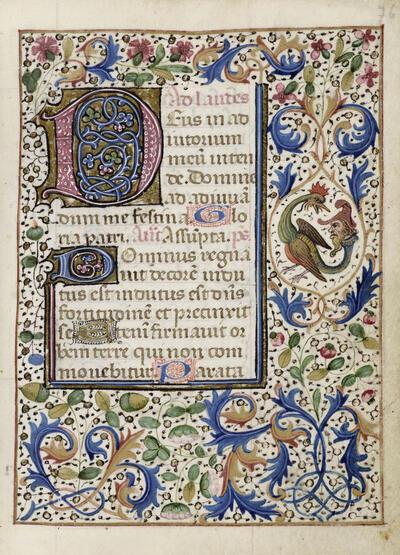 76
Ad laudes
Deus in ad
iutorium
meū inten
de. Domine
ad adiuuā
dum me festina Glo
ria patri. Añ. Assupta. ps
Dominus regna
uit decorē indu
tus est indutus est dn̄s
fortitudinē et precinxit
se Etenī firmauit or
bem terre qui non com
mouebitur Parata